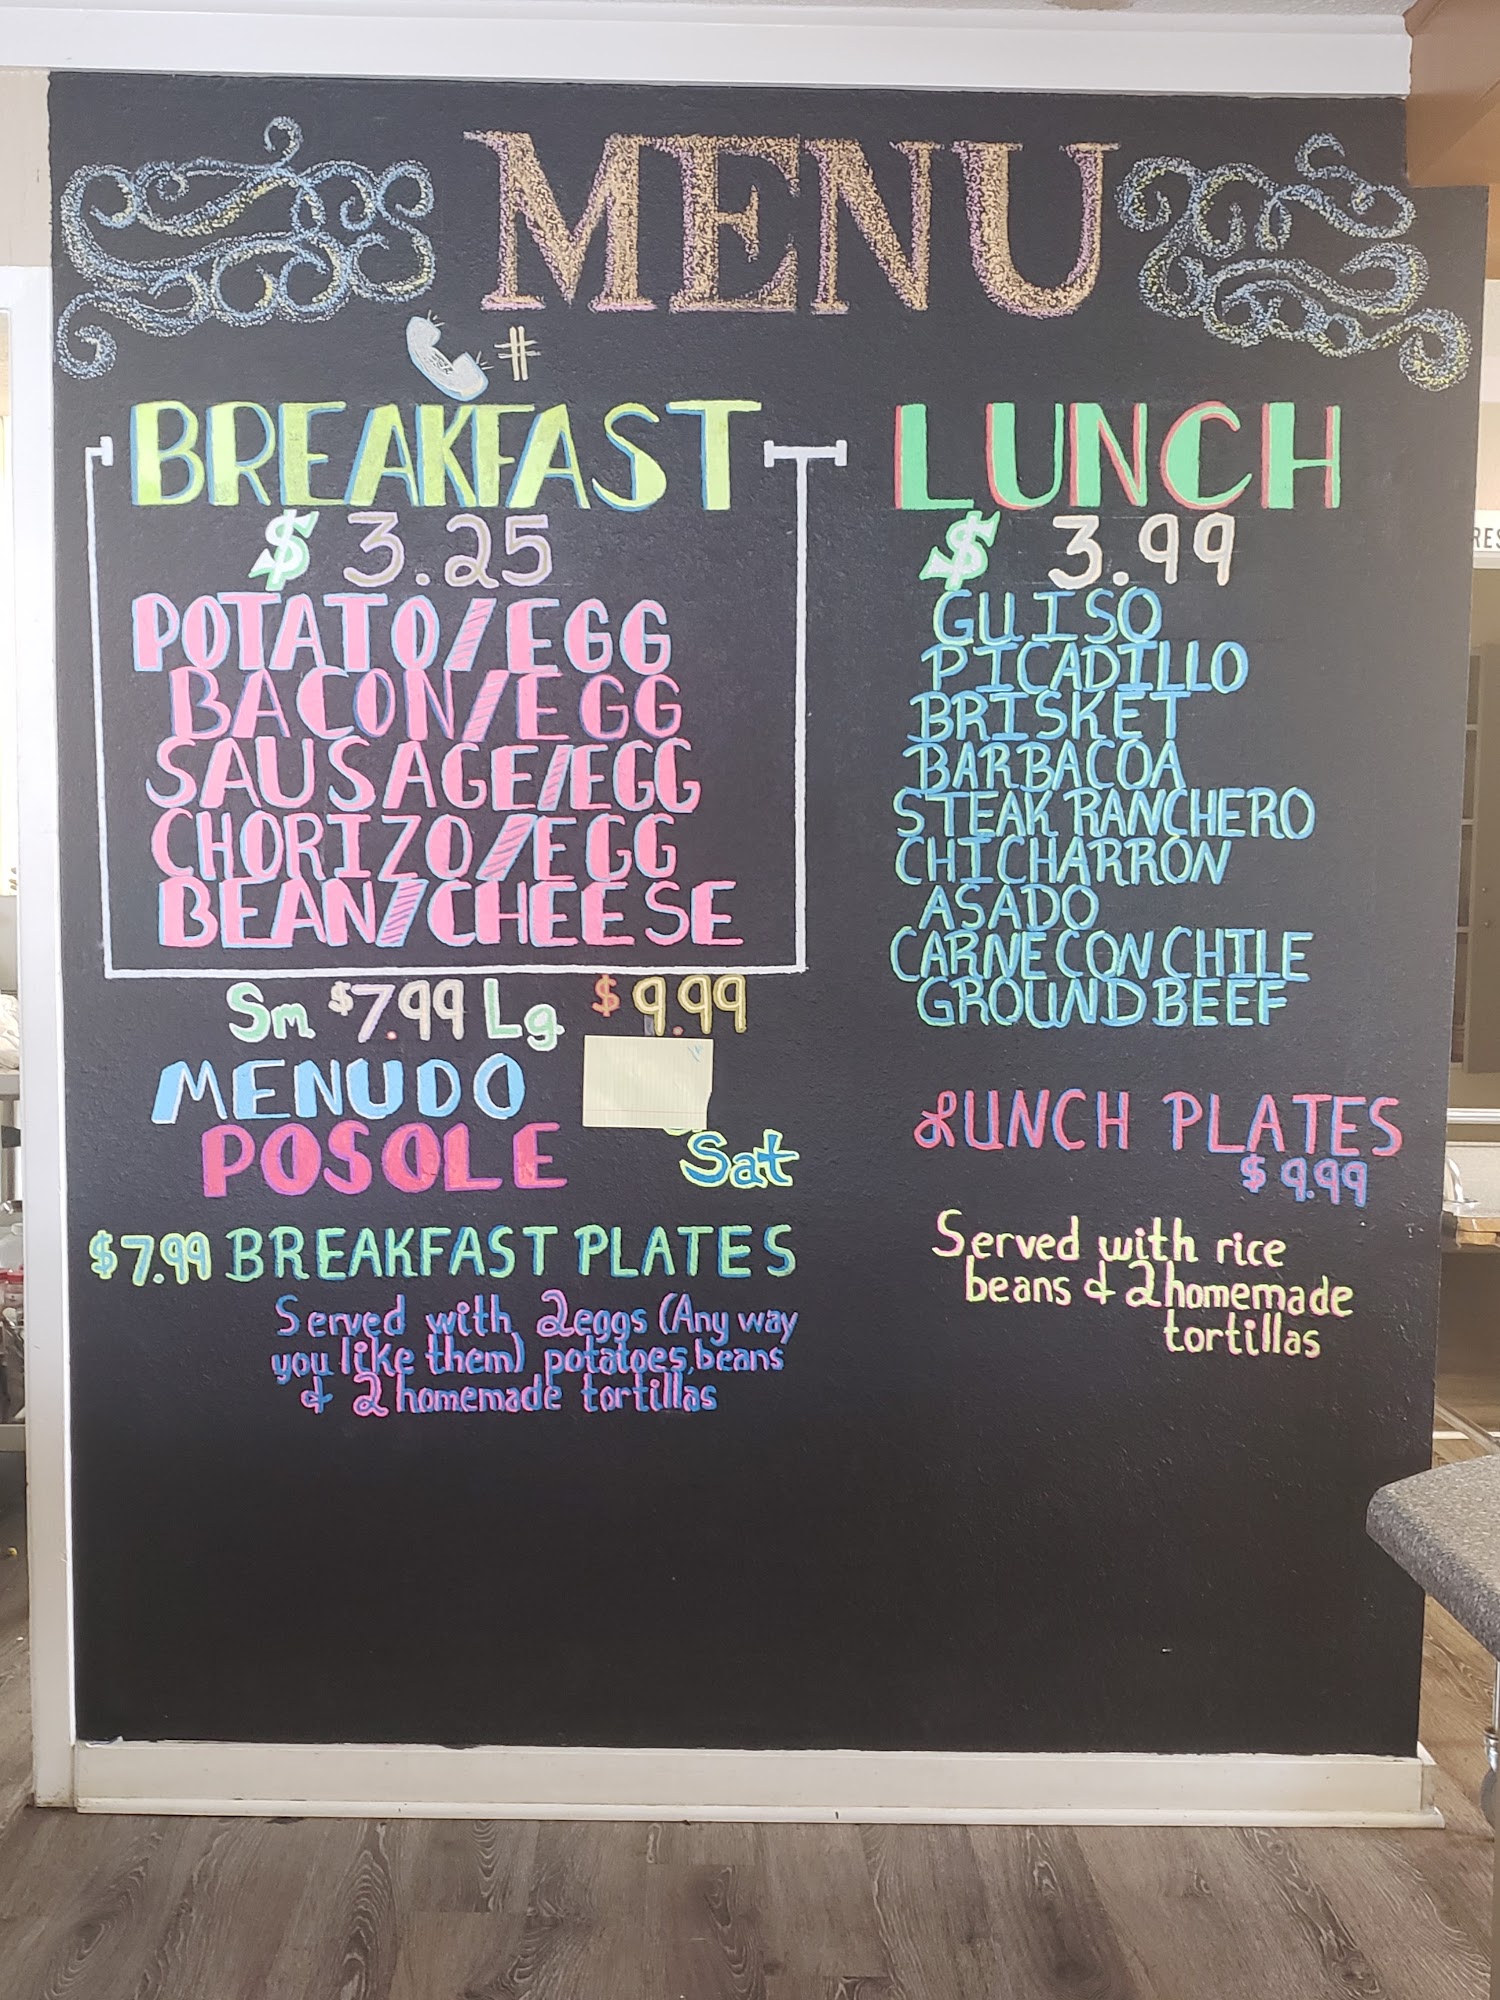 MENU
#
BREAKFAST
$ 3.25
POTATO/EGG
BACON/EGG
SAUSAGE/EGG
CHORIZO/EGG
BEAN/CHEESE
Sm $7.99 Lg $9.99
MENUDO
POSOLE
Sat
$7.99 BREAKFAST PLATES
Served with 2 eggs (Any way
you like them) potatoes, beans
& 2 homemade tortillas
LUNCH
$ 3.99
GUISO
PICADILLO
BRISKET
BARBACOA
STEAK RANCHERO
CHICHARRON
ASADO
CARNE CON CHILE
GROUND BEEF
LUNCH PLATES
$9.99
Served with rice
beans & 2 homemade
tortillas